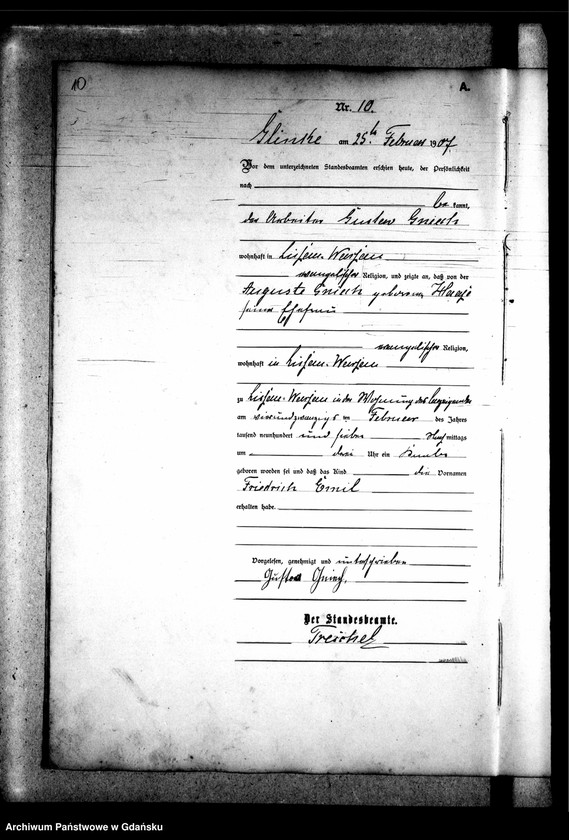 10
A.
Nr. 10.
Glinke am 25ten Februar 1907
Vor dem unterzeichneten Standesbeamten erschien heute, der Persönlichkeit
nach
be kannt,
der Arbeiter Gustav Gniech
wohnhaft in
evangelischer Religion, und zeigte an, daß von der
Auguste Gniech geborenen
seiner Ehefrau
evangelischer Religion,
wohnhaft in
zu in der Wohnung des Anzeigenden
am vierundzwanzigsten Februar des Jahres
tausend neunhundert und sieben Nachmittags
um drei Uhr ein Knabe
geboren worden sei und daß das Kind die Vornamen
Friedrich Emil
erhalten habe.
Vorgelesen, genehmigt und unterschrieben
Gustav Gniech.
Der Standesbeamte.
Treichel
Archiwum Państwowe w Gdańsku